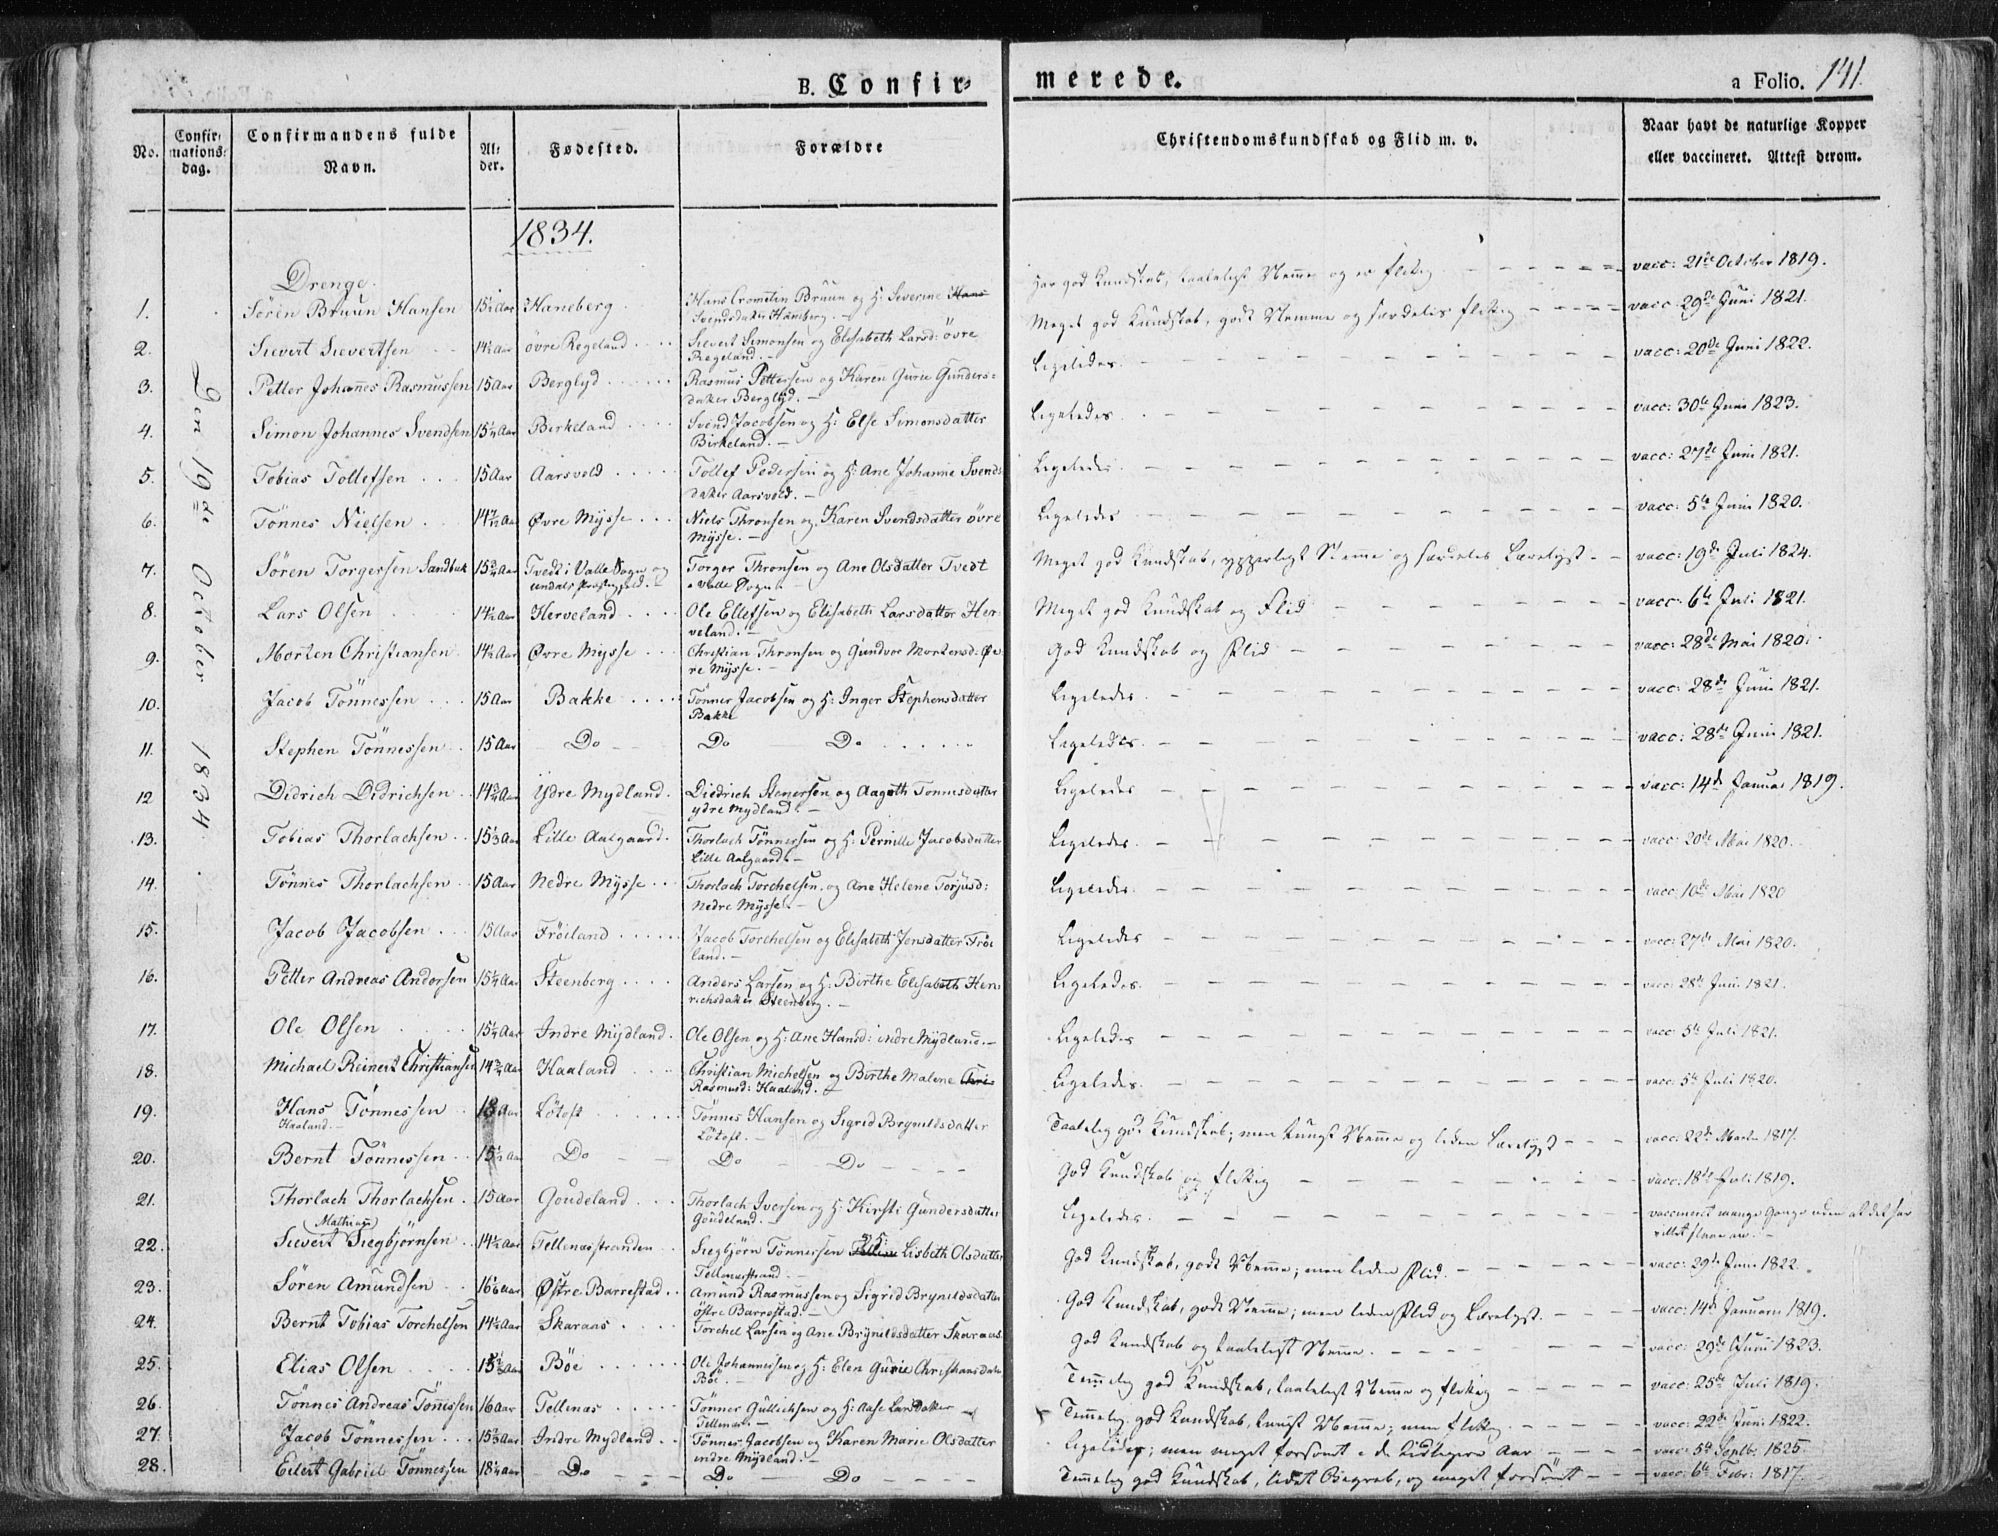 B. Confir= merede. a Folio. 141.
No. Confir: mations: dag. Confirmandens fulde Navn. Al: der. Fødested. Forældre Christendomskundskab og Flid m. v. Naar havt de naturlige Kopper eller vaccineret. Attest derom.
1834.
Drenge.
Den 19de October 1834.
1. Sören Bruun Hansen 15½ Aar Haneberg Hans Crometin Bruun og H: Severine Hans
Svendsdatter Hamberg. — Har god Kundskab, taaleligt Nemme og er flittig vacc: 21de October 1819.
2. Sievert Sievertsen 14½ Aar övre Regeland Sievert Simonsen og Elisabeth Larsd: övre
Regeland. — Meget god Kundskab, godt Nemme og særdeles flittig vacc: 29de Juni 1821.
3. Petter Johannes Rasmussen 15 Aar Berglyd Rasmus Pettersen og Karen Gurie Gunders=
datter Berglyd. — Ligeledes vacc: 20de Juni 1822.
4. Simon Johannes Svendsen 15¼ Aar Birkeland Svend Jacobsen og H: Else Simonsdatter
Birkeland. — Ligeledes vacc: 30te Juni 1823.
5. Tobias Tollefsen 15 Aar Aarsvold Tollef Pedersen og H: Ane Johanne Svends
datter Aarsvold. — Ligeledes vacc: 27de Juni 1821.
6. Tönnes Nielsen Aar Øvre Mysse Niels Thronsen og Karen Svendsdatter övre
Mysse. — Ligeledes vacc: 5te Juni 1820.
7. Sören Torgersen Sandbak 15¾ Aar Tvedt i Valle Sogn og
undals Præstegjeld. Torger Thronsen og Ane Olsdatter Tvedt
Valle Sogn. — Meget god Kundskab, ypperligt Nemme og særdeles Lærelyst vacc: 19de Juli 1824.
8. Lars Olsen 14½ Aar Herveland Ole Ellefsen og Elisabeth Larsdatter Her
veland. — Meget god Kundskab og Flid vacc: 6te Juli 1821.
9. Morten Christiansen 14½ Aar Øvre Mysse Christian Thronsen og Gundvor Mortensd: Øv
re Mysse. — God Kundskab og Flid vacc: 28de Mai 1820.
10. Jacob Tönnessen 15 Aar Bakke Tönner Jacobsen og H: Inger Stephensdatter
Bakke Ligeledes vacc: 28de Juni 1821.
11. Stephen Tönnessen 15 Aar Do Do Do Ligeledes vacc: 28de Juni 1821.
12 Didrich Didrichsen 14¾ Aar Ydre Mydland Diedrich Stenersen og Aagoth Tönnesdatter
ydre Mydland. — Ligeledes vacc: 14de Januar 1819.
13. Tobias Thorlachsen 15⅓ Aar Lille Aalgaard Thorlach Tönnersen og H: Pernille Jacobsdatter
Lille Aalgaard. — Ligeledes vacc: 20de Mai 1820.
14. Tönnes Thorlachsen 15 Aar Nedre Mysse Thorlach Torchelsen og Ane Helene Torjusd:
Nedre Mysse. — Ligeledes vacc: 10de Mai 1820
15. Jacob Jacobsen 15 Aar Fröiland Jacob Torchelsen og Elisabeth Jensdatter Fröi
land. — Ligeledes vacc: 27de Mai 1820.
16. Petter Andreas Andersen 15¼ Aar Steenberg Anders Larsen og H: Birthe Elisabeth Hen
richsdatter Steenberg. — Ligeledes vacc: 28de Juni 1821.
17. Ole Olsen 15¼ Aar Indre Mydland Ole Olsen og H: Ane Hansd: indre Mydland. — Ligeledes vacc: 5te Juli 1821.
18. Michael Reinert Christiansen 14¾ Aar Haaland Christian Michelsen og Birthe Malene Chri
Rasmusd: Haaland. — Ligeledes vacc: 5te Juli 1820.
19. Hans Tönnessen
Haaland. — 18 Aar Lötoft Tönnes Hansen og Sigrid Brynildsdatter
Lötoft. — Taalelig god Kundskab; men tungt Nemme og liden Lærelyst vacc: 22de Marts 1817.
20. Bernt Tönnessen 15½ Aar Do Do Do God Kundskab og flittig vacc: 18de Juli 1819.
21. Thorlach Thorlachsen 15 Aar Goudeland Thorlach Iversen og H: Kirsti Gundersdatter
Goudeland. — Ligeledes vaccineret mange Gange uden at det har
villet slaae an. —
22. Sievert Mathias Siegbjörnsen 14½ Aar Tellenæsstranden Siegbjörn Tönnersen Lisbeth Olsdatter
Tellenæsstrand. — God Kundskab, godt Nemme; men liden Flid. vacc: 29de Juni 1822.
23. Sören Amundsen Aar Østre Barrestad Amund Rasmussen og Sigrid Brynildsdatter
östre Barrestad. — God Kundskab, godt Nemme; men liden Flid og Lærelyst. vacc: 14de Januar 1819.
24. Bernt Tobias Torchelsen 14½ Aar Skaraas Torchel Larsen og Ane Brynildsdatter Skaraas. God Kundskab og taaleligt Nemme. vacc: 29de Juni 1823.
25. Elias Olsen 15½ Aar Böe Ole Johannessen og H: Elen Gurie Christiansdatter
Böe. — Temmelig god Kundskab, taaleligt Nemme og flittig vacc: 25de Juli 1819.
26. Tönnes Andreas Tönnessen 16 Aar Tellenæs Tönner Gullichsen og H: Aase Larsdatter
Tellenæs. — Temmelig god Kundskab, tungt Nemme; men flittig vacc: 22de Juni 1822.
27. Jacob Tönnessen 15⅔ Aar Indre Mydland Tönnes Jacobsen og Karen Marie Olsdatter
indre Mydland. — Ligeledes; men meget forsömt i de tidligere Aar vacc: 5te Septb: 1825.
28. Eilert Gabriel Tönnessen 18¼ Aar Do Do Do Temmelig god Kundskab, lidet Begreb, og meget forsömt vacc: 6te Febr: 1817.